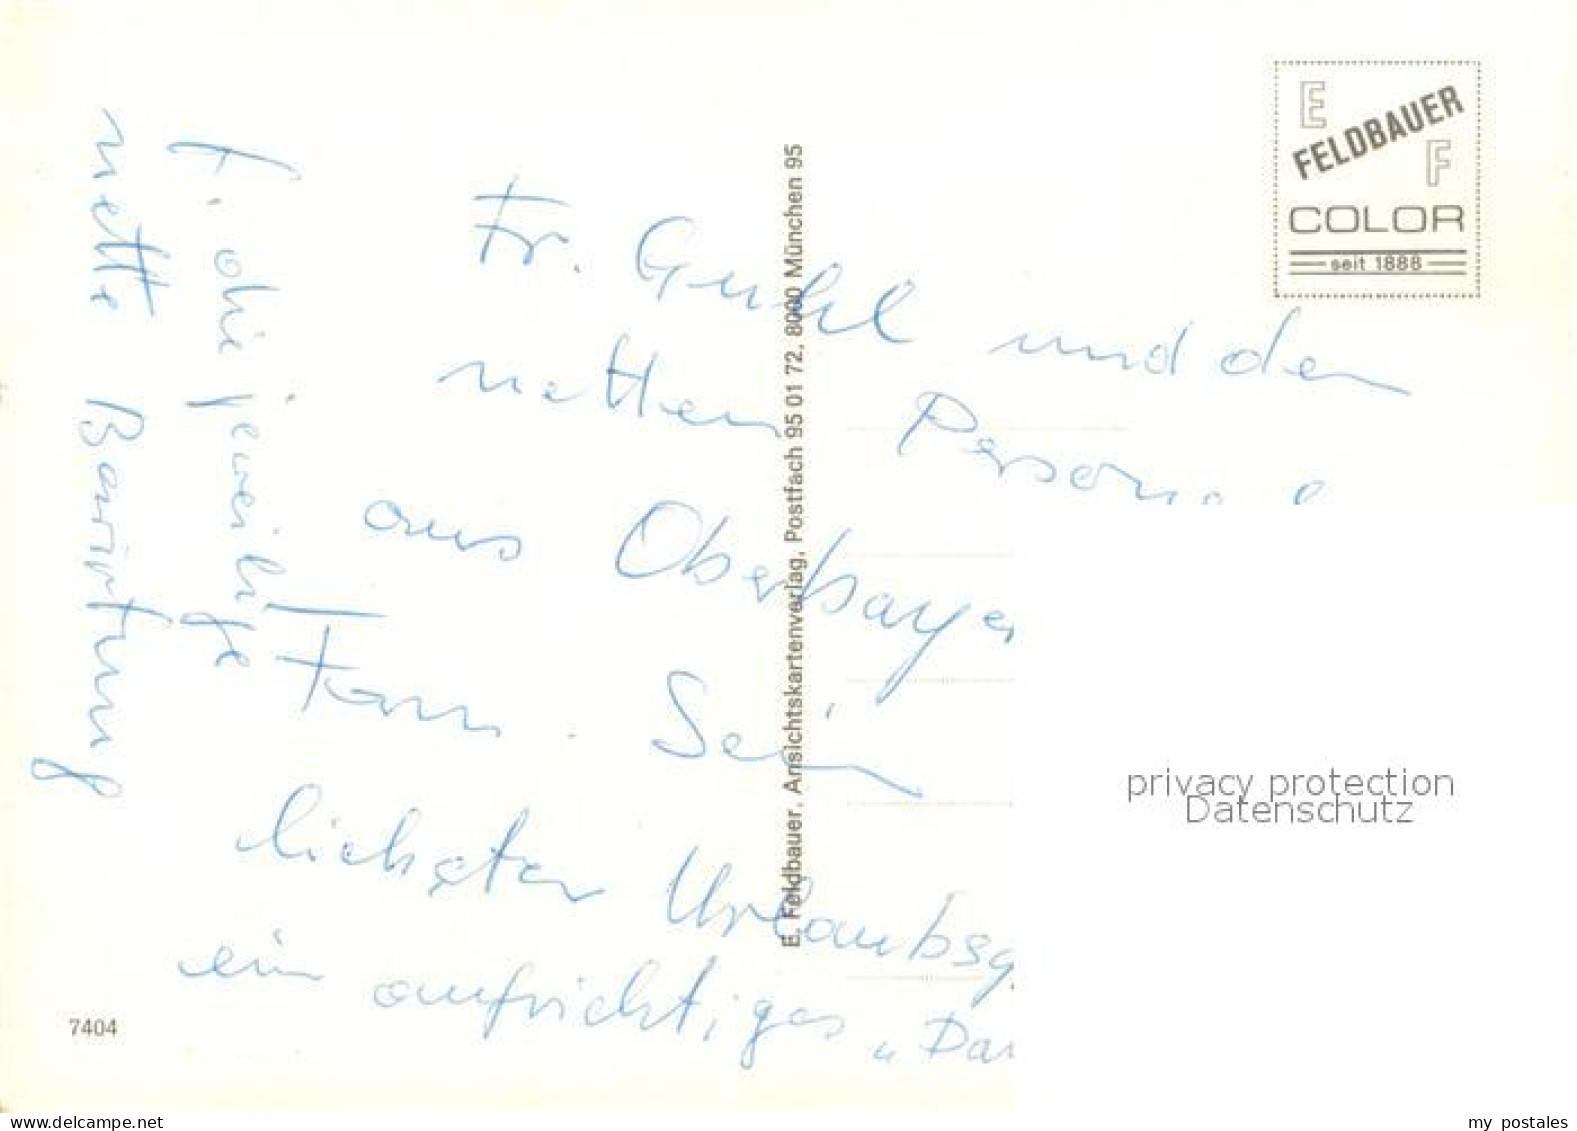 E
FELDBAUER
F
COLOR
seit 1888
Fr. Guhl und den
netten Persona
aus Oberbaye
Fam. Sei
lichster Urlaubsg
ein aufrichtiges „Dan
f. die jeweilige
nette Bewirtung
E. Feldbauer, Ansichtskartenverlag, Postfach 95 01 72, 8000 München 95
7404
privacy protection
Datenschutz
www.delcampe.net
my postales